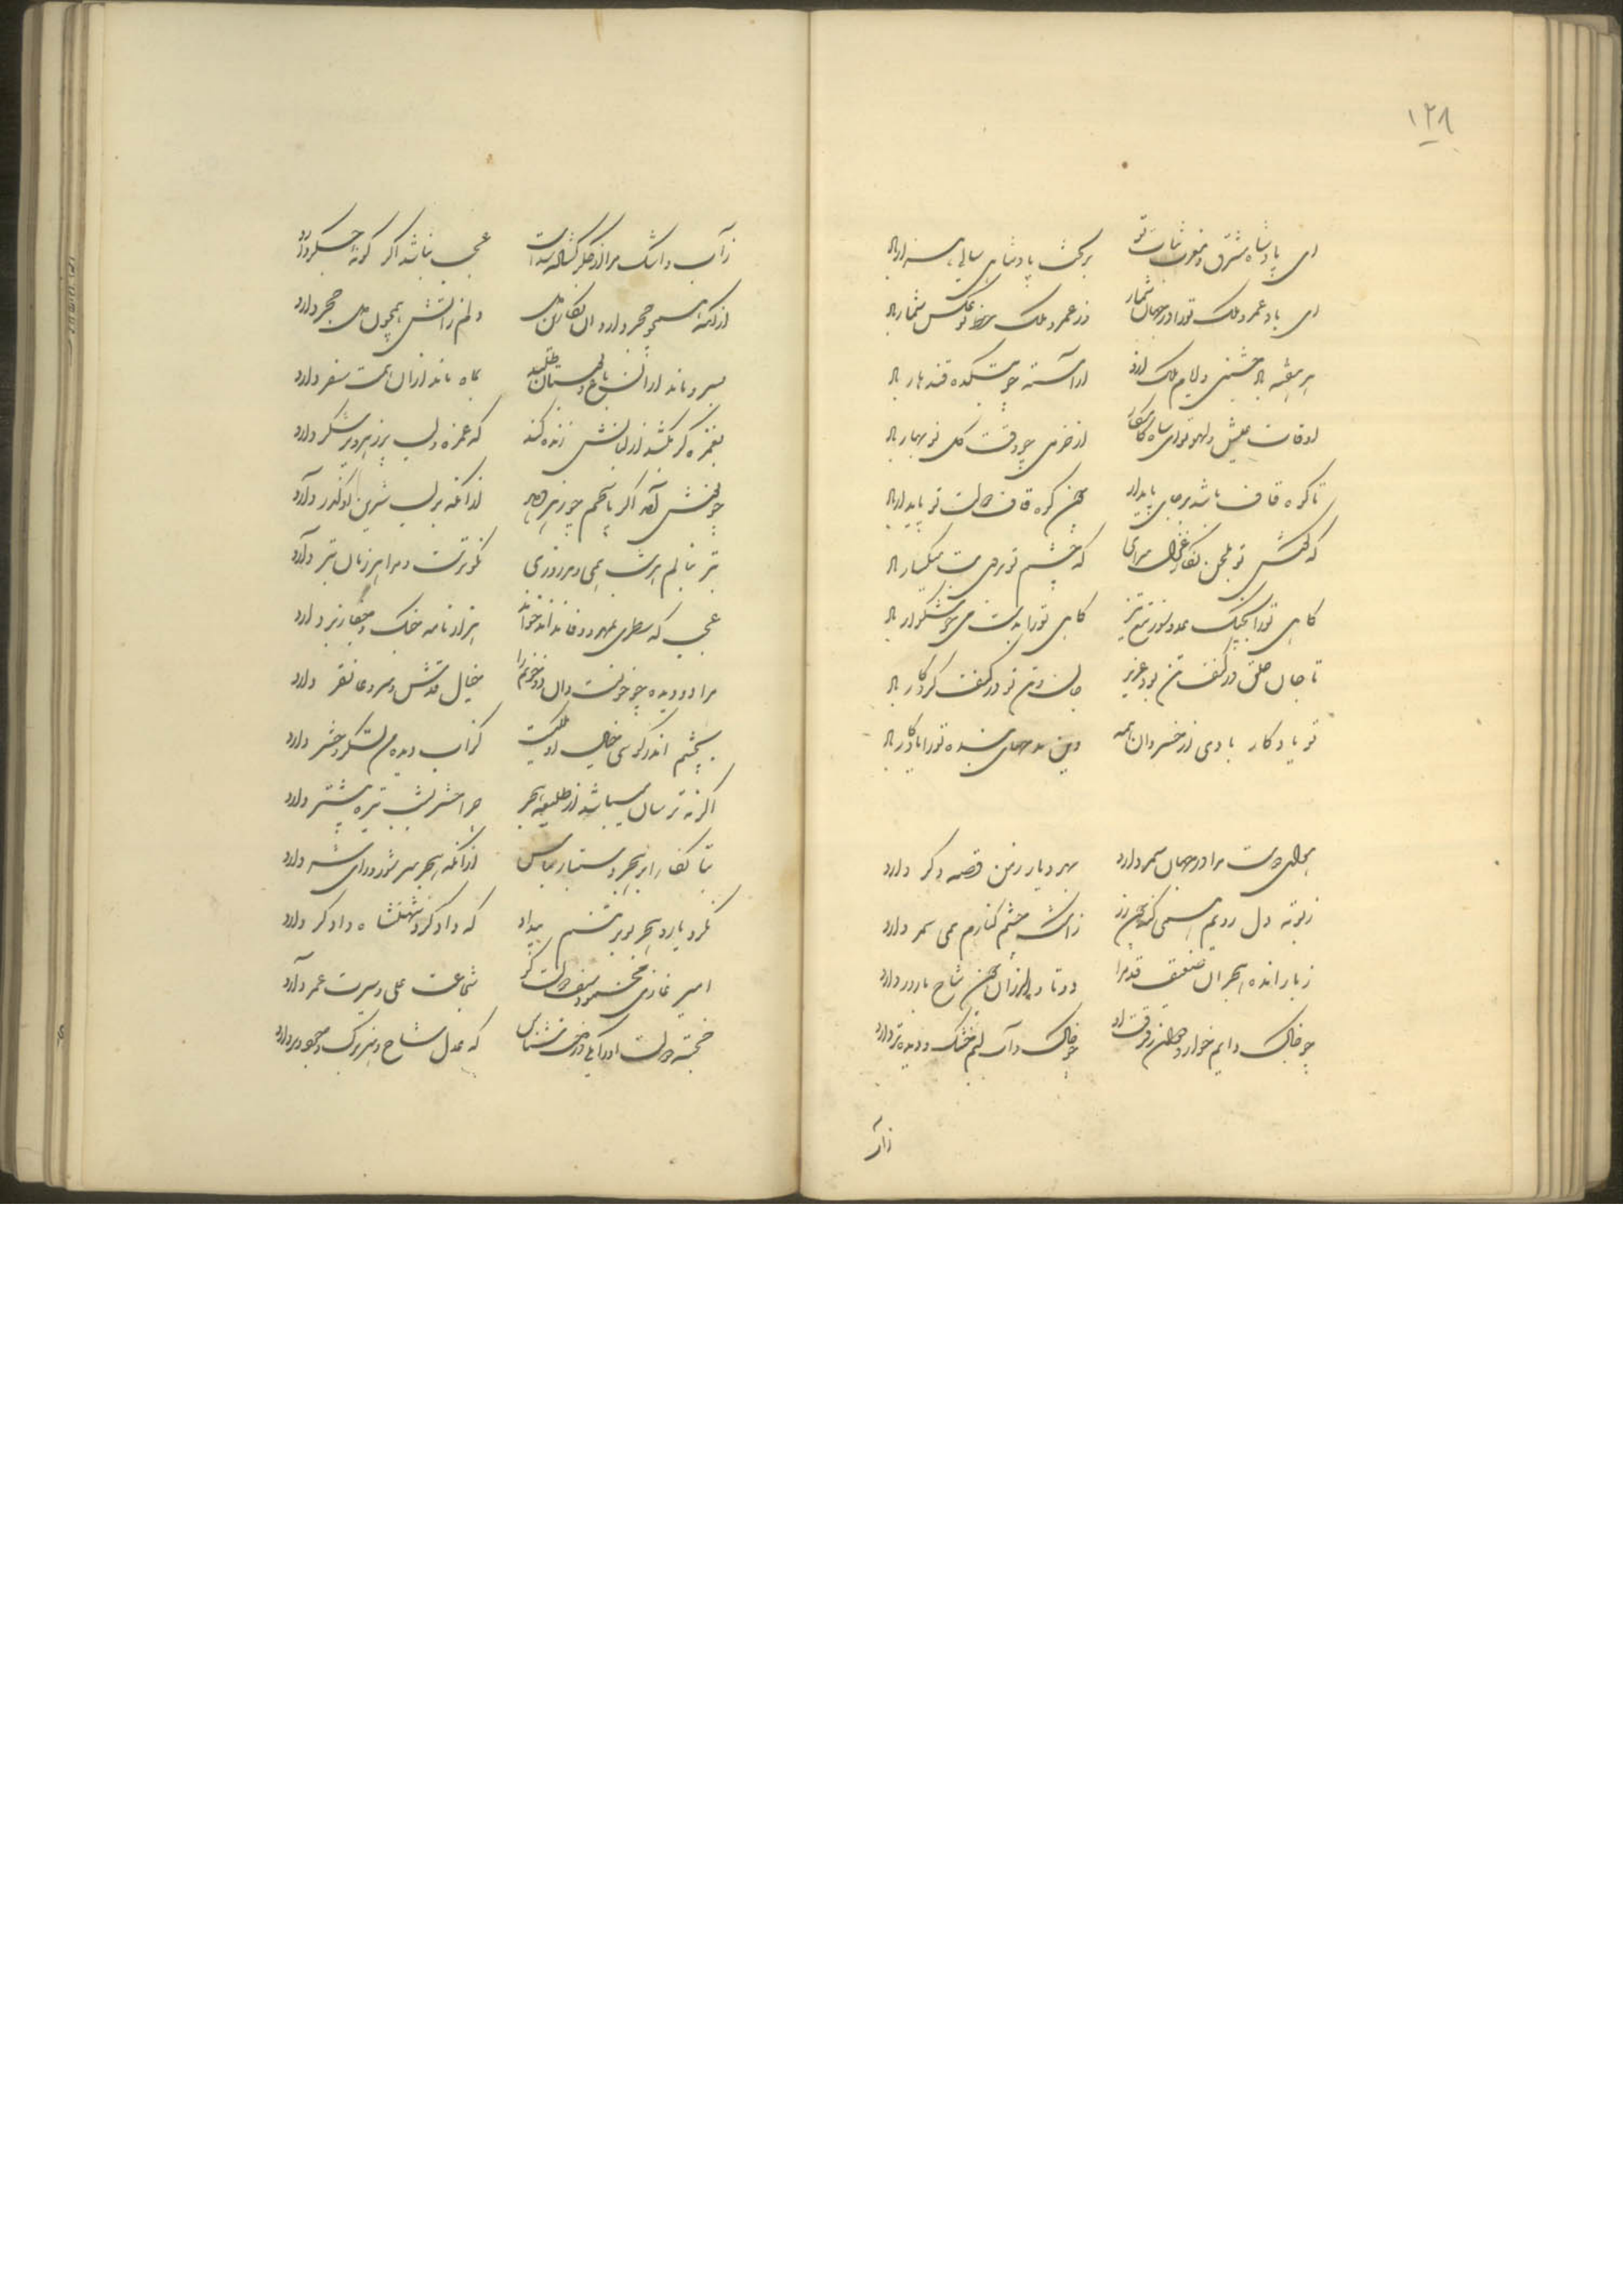 ۱۲۸
ای پادشاه مشرق و مغرب ثبات تو بر تخت پادشاهی سالی هزار باد
ای باد عمر و ملک تو را در جهان شمار در عمر و ملک تو عکس شمار باد
هر بقعه باد جشنی و ایام ملک او آراسته چو بتکده قندهار باد
اوقات عیش و لهو تو ای شاه کامکار از خرمی چو وقت گل نوبهار باد
تا کوه قاف باشد بر جای پایدار همچون کوه قاف دولت تو پایدار باد
که گوش تو بلحن نگار غزل سرای که چشم تو بروی بت میگسار باد
گاهی تو را بجنگ عدو تیغ تیز گاهی تو را بدست می خوشگوار باد
تا جان خلق در کنف تن بود عزیز جان و تن تو در کنف کردگار باد
تو یادگار بادی از خسروان همه وین مدحهای بنده تو را یادگار باد
هوای دوست مرا در جهان سمر دارد بهر دیار ز من قصه دگر دارد
ز بوته دل رویم همی کند چون زر ز اشک چشم کنارم همی شمر دارد
ز بار انده هجران ضعیف قد مرا دو تا و لرزان چون شاخ بارور دارد
چو خاک دایم خوار و جهان ز فرقت او چو خاک و آب لبم خشک و دیده تر دارد
زآب
زآب و اشک مرا عجب نباشد اگر گونه جگر دارد
از آنکه همچو حجر دارد آن نگارین دل دلم ز آتش همچون دل حجر دارد
بسرو ماند از آنش بباغ و بستان طلبید بماه ماند از آن همت سفر دارد
بغمزه گر بکشد از لبانش زنده کند که غمزه و لب پر زهر و پر شکر دارد
چو نخش آید اگر پاسخم چو زهر دهد از آنکه بر لب شیرین او گذر دارد
بتر بنالم هر شب همی و هر روزی نکوترست و مرا هر زمان بتر دارد
عجب که سطری مهر و وفا نداند خواند هزار نامه جنگ و جفا ز بر دارد
مرا دو دیده چو جویست و آن دو جوی مرا خیال قدش و سرو غاتفر دارد
بچشم اندر گویی خیال او ملکیست کز آب دیده من لشکر و حشر دارد
اگر نه ترسان میباشد از طلیعه هجر چرا حشر بشب تیره بیشتر دارد
بتا نگارا بر هجر دستیار مباش از آنکه هجر سر شور و رای شر دارد
نکرد یارد هجر تو بر تنم بیداد که داد کرد شهنشاه دادگر دارد
امیر غازی محمود سیف دولت کو شجاعت علی و سیرت عمر دارد
خجسته دولت او را یکی درخت شناس که عدل شاخ و هنر برگ و جود بر دارد